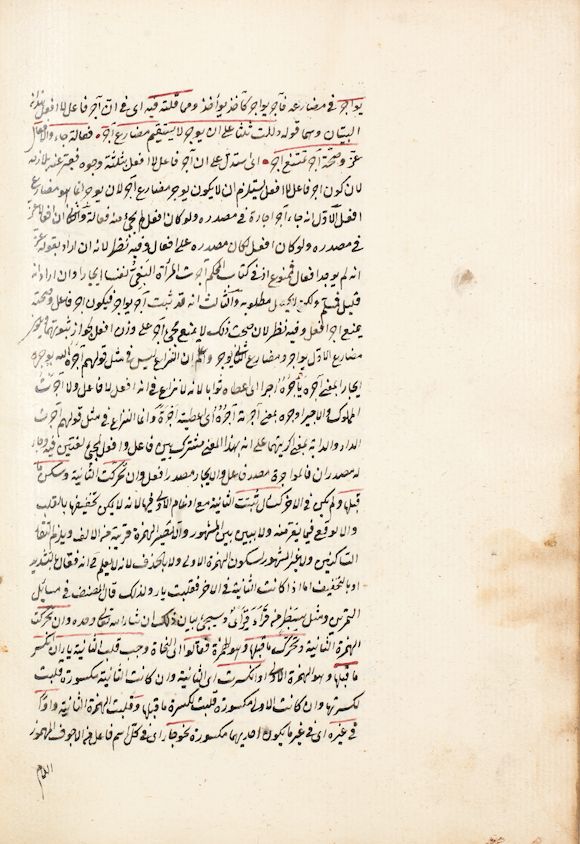 يواجر في مضارعه فآجر يواجر كآخذ يوآخذ ومما قلته فيه اى في ان آجر فاعل لا افعل
البيتان وهما قوله دللت ثلثا على ان يوجر لا يستقيم مضارع آجر فعالة جاء والافعال
عز وصحة آجر تمنع آجر اى ستدل على ان آجر فاعل لا افعل بثلثة وجوه فعبر عنه بلازمه
لان كون آجر فاعل لا افعل يستلزم ان لا يكون يوجر مضارع آجر لان يوجر انما هو مضارع
افعل الاول انه جاء آجر اجارة في مصدره ولو كان افعل لم يجئ منه فعالة والثانى ان افعالا عز
في مصدره ولو كان افعل لكان مصدره على افعال وفيه نظر لانه ان اراد بقوله عز
انه لم يوجد افعال فممنوع اذ في كتاب المحكم آجرت المرأة البغي نفسها ايجارا وان اراد انه
قليل فمسلم ولكن لا يحصل مطلوبه والثالث انه قد ثبت آجر يواجر فيكون آجر فاعل وصحته
يمنع آجر افعل وفيه نظر لان صحت ذلك لا يمنع مجئ آجر على وزن افعل لجواز ثبوتهما ويكون
مضارع الاول يواجر ومضارع الثانى يوجر واعلم ان النزاع ليس في مثل قولهم آجره الله يوجره
ايجارا بمعنى اجره يأجره اجرا اى اعطاه ثوابا لانه لا نزاع في انه افعل لا فاعل ولا آجرت
المملوك والاجير اوجره بمعنى اجرته آجره اى اعطيته اجرة وانما النزاع في مثل قولهم آجرت
الدار والدابة بمعنى اكريتها على انه بهذا المعنى مشترك بين فاعل وافعل لمجئ لغتين فيه وجاء
له مصدران فالمواجرة مصدر فاعل والايجار مصدر افعل وان تحركت الثانية وسكن ما
قبلها ولم يكن في الآخر كسأل ثبتت الثانية مع ادغام الاولى فيها لانه لا يمكن تخفيفها بالقلب
والا لوقع فيما يفر منه ولا بين بين المشهور والا يصير الهمزة قريبة من الالف ويلزم التقاء
الساكنين ولا غير المشهور لسكون الهمزة الاولى ولا بالحذف لانه لا يعلم في انه فعال بالتشديد
او بالتخفيف اما اذا كانت الثانية في الآخر فقلبت ياء ولذلك قال المصنف في مسائل
التمرين ومثل سبطر من قرأ قرأى وسيجئ بيان ذلك ان شاء الله تعالى وحده وان تحركت
الهمزة الثانية وتحرك ما قبلها وهو الهمزة قالوا اى النحاة وجب قلب الثانية ياء ان انكسر
ما قبلها وهو الهمزة الاولى او انكسرت اى الثانية وان كانت الثانية مكسورة قلبت
لكسرتها وان كانت الاولى مكسورة قلبت لكسرة ما قبلها وقلبت الهمزة الثانية واوا
في غيره اى في غير ما يكون احديهما مكسورة نحو جاء اى في كل اسم فاعل من الاجوف المهموز
اللام